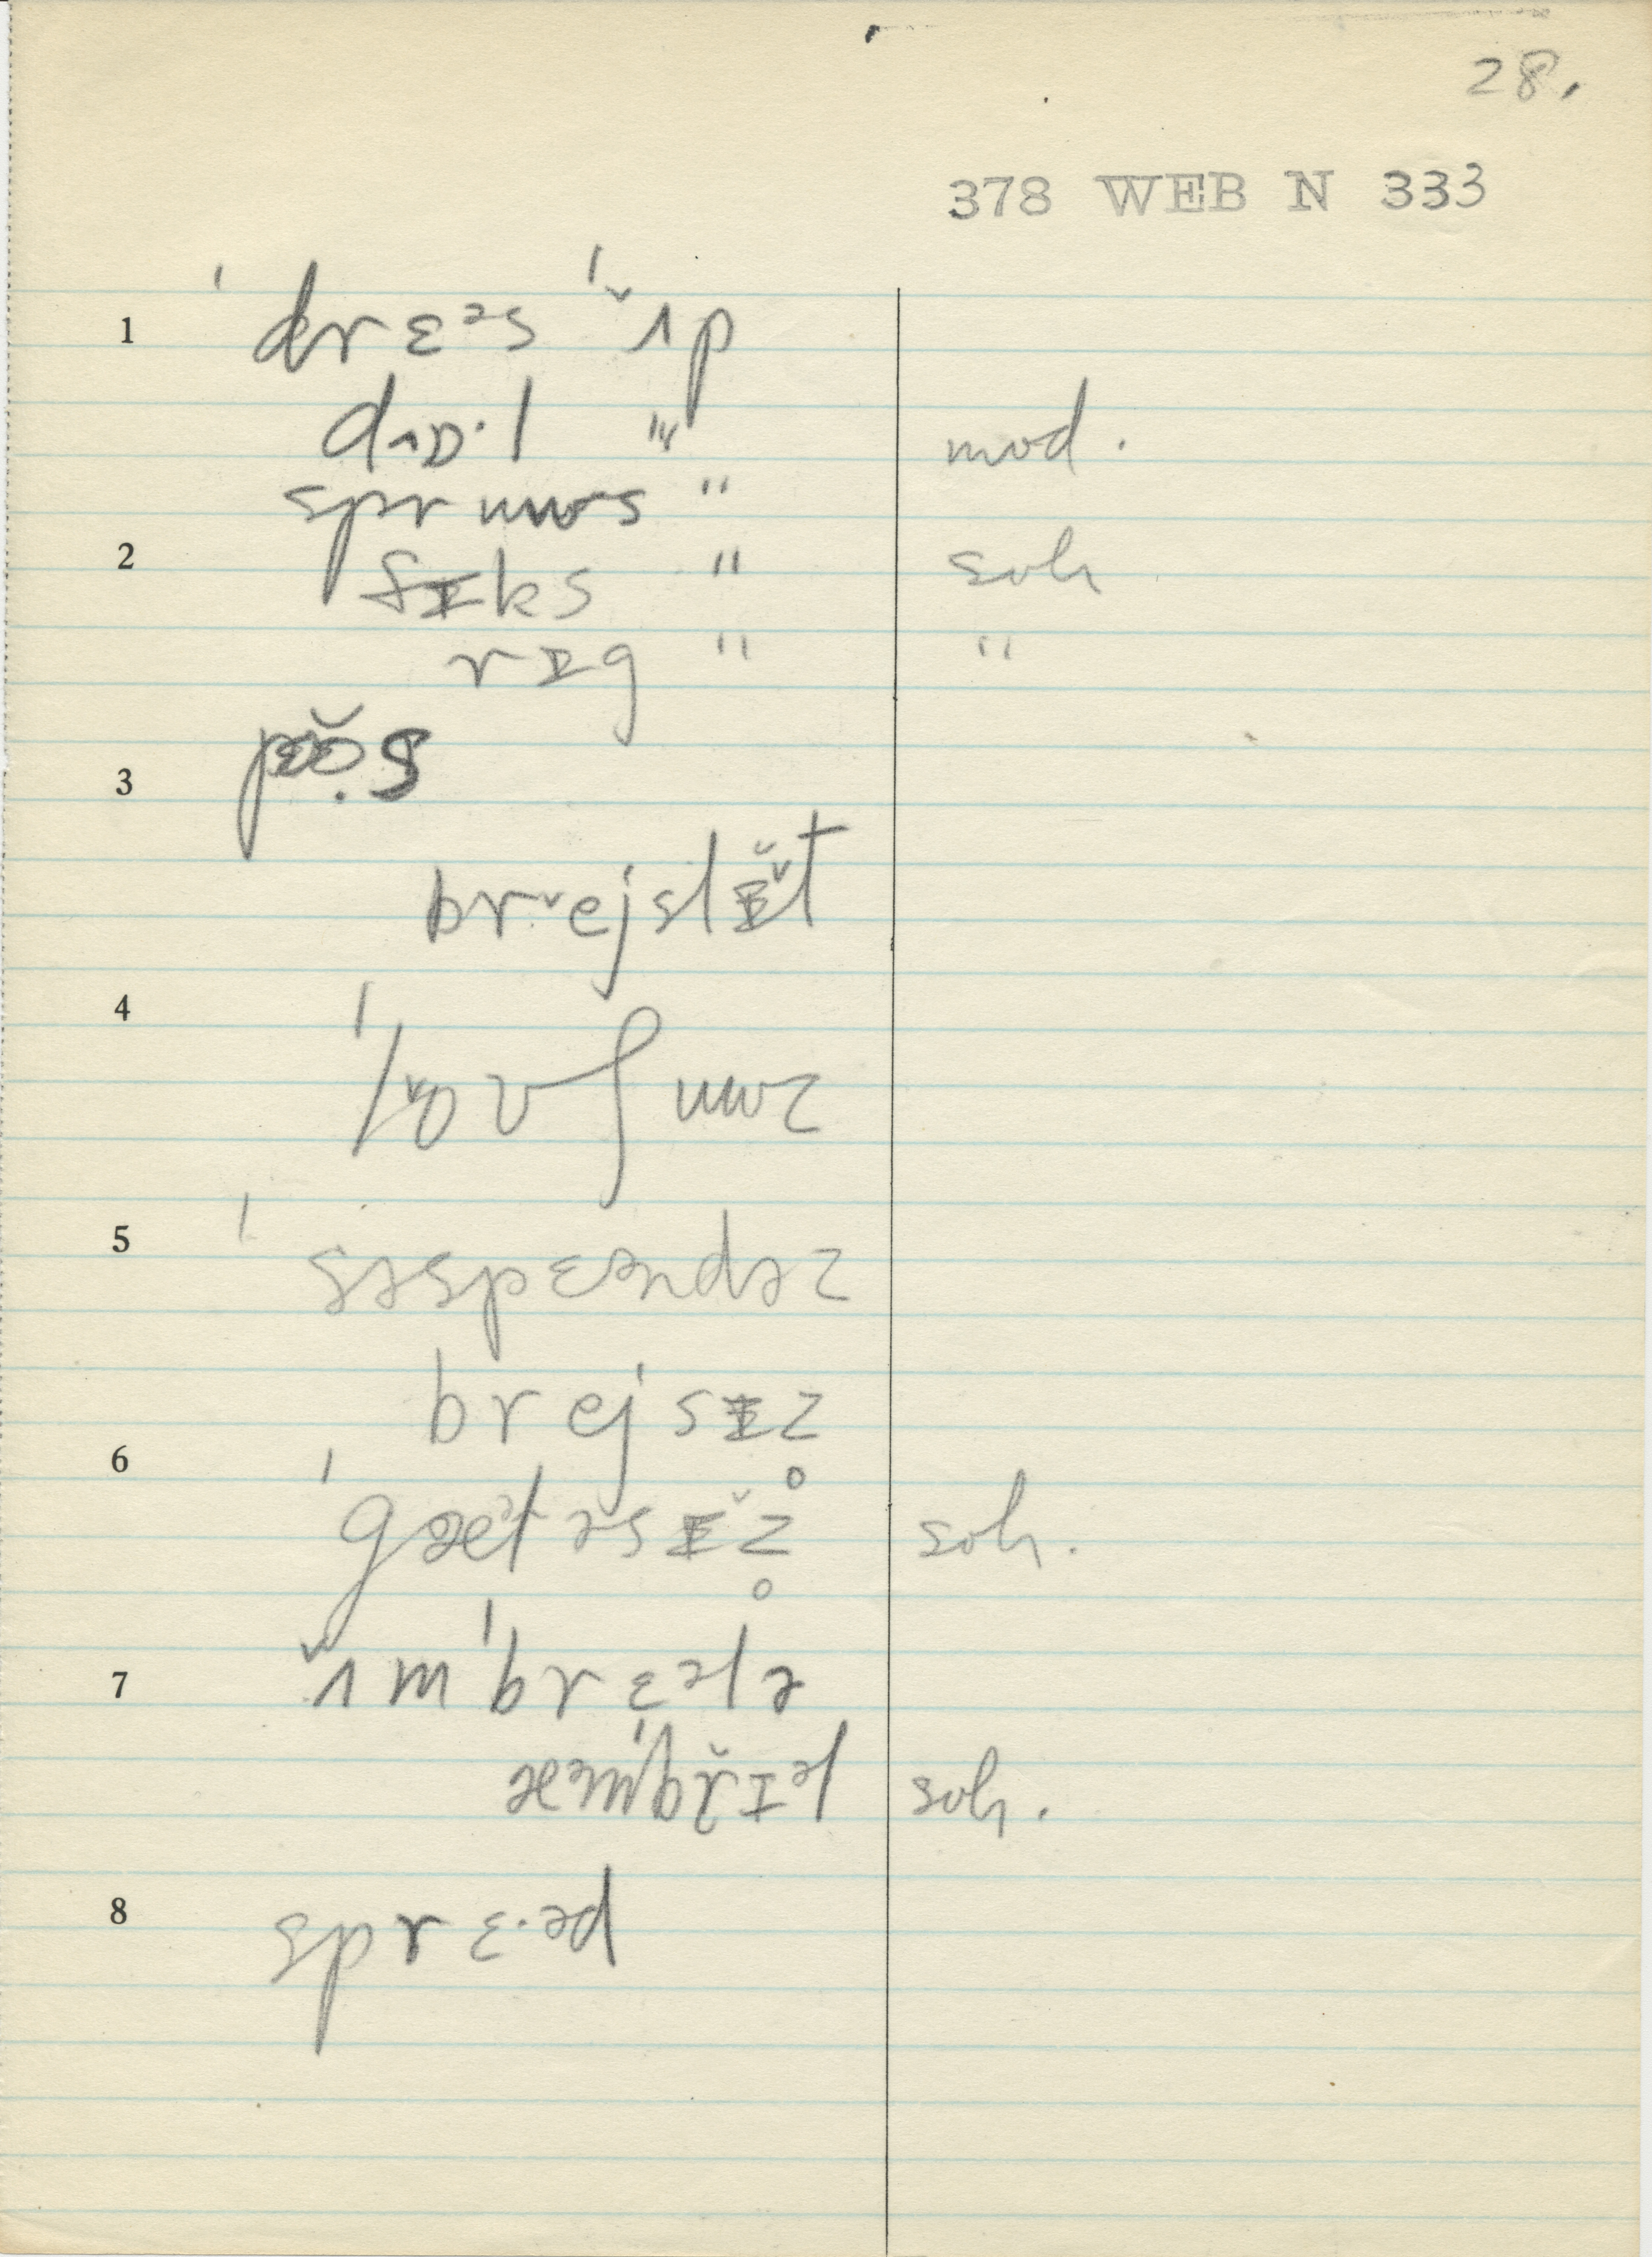 28.
378 WEB N 333
1 ˈdrɛᵊs ˈʌ̆p
dʌɒ·l " mod.
sprʉus "
2 fɪks " soh
rɪg " "
3
brejslɪ̆t
4
5 ˈsəspɛᵊndəz
brejsɪz̥
6 ˈgæᵊtəsɪ̆z̥ soh.
7 ʌ̆mˈbrɛᵊlə
soh.
8 sprɛ·ᵊd